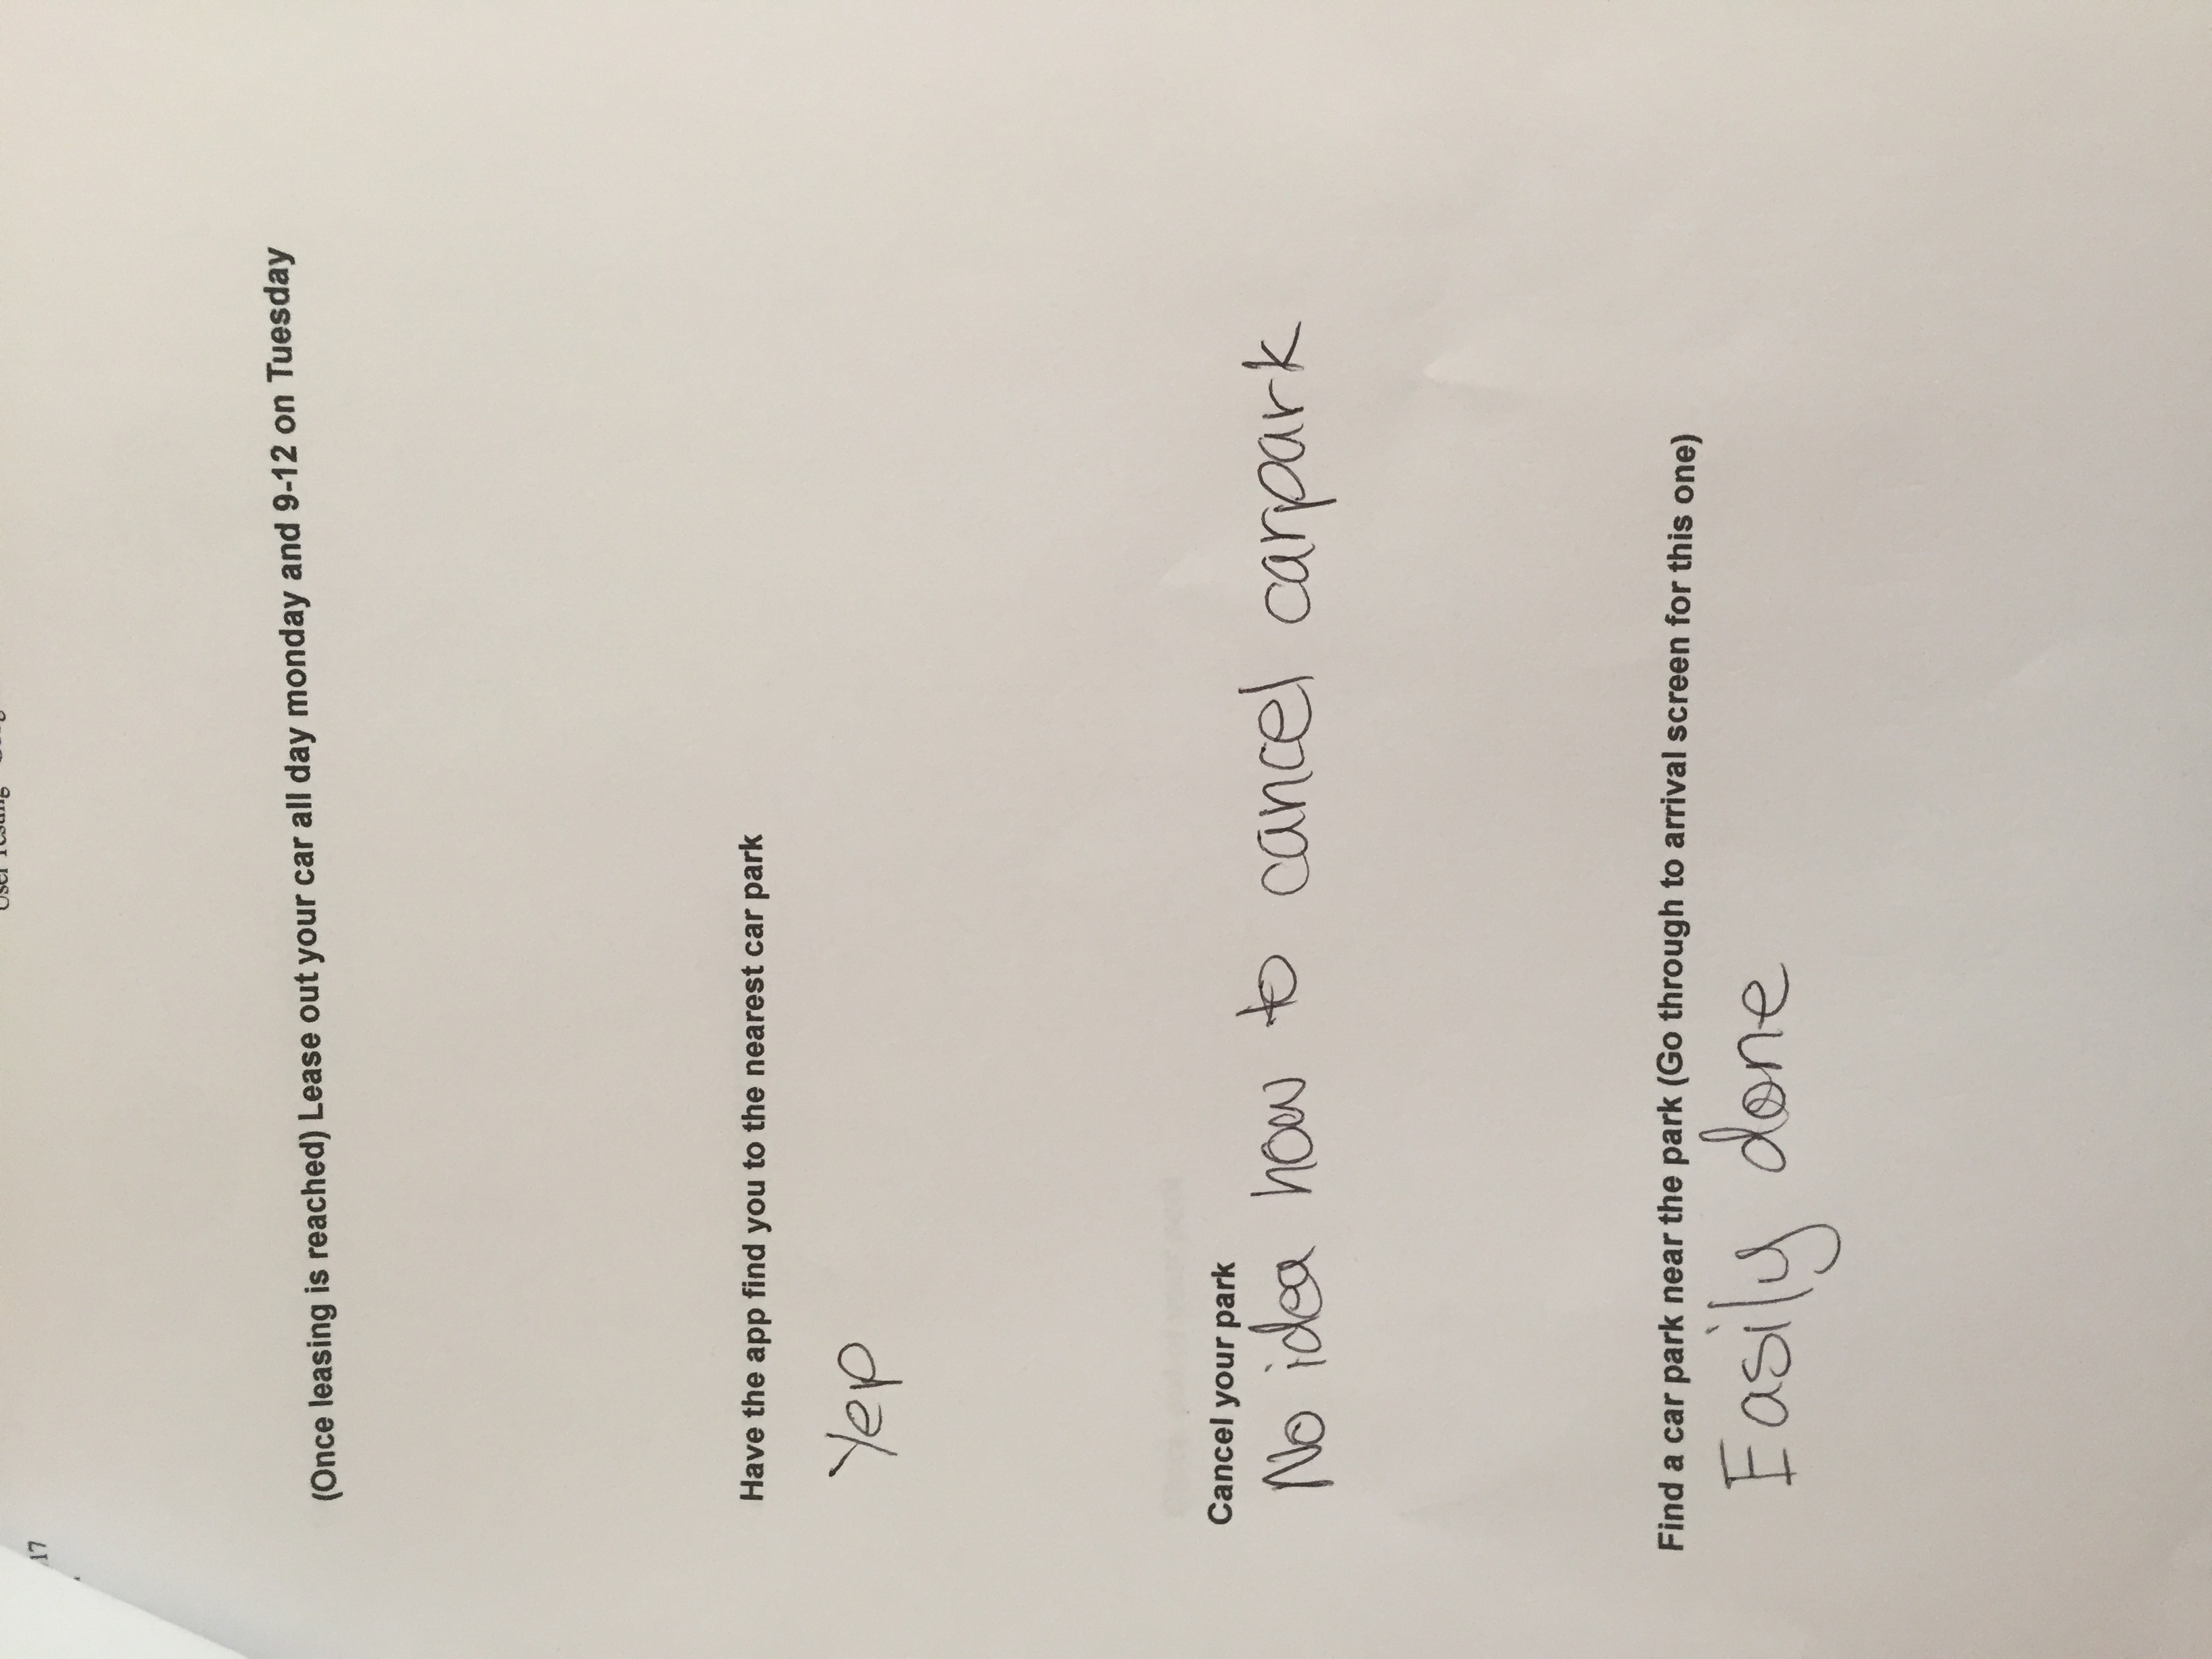 17
User Testing
(Once leasing is reached) Lease out your car all day monday and 9-12 on Tuesday
Have the app find you to the nearest car park
Yep
Cancel your park
No idea how to cancel carpark
Find a car park near the park (Go through to arrival screen for this one)
Easily done